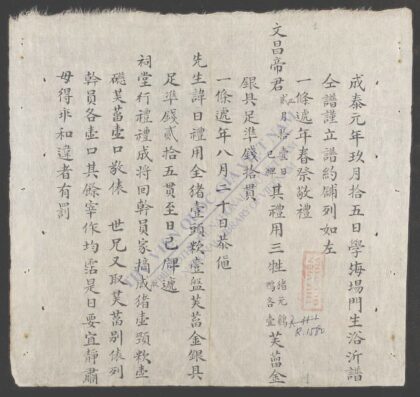 成泰元年玖月拾五日學海場門生浴沂譜
仝譜謹立譜約鋪列如左
一條遞年春祭敬禮
文昌帝君貳月拾壹日巳牌其禮用三牲猪元鷄鴨各壹芙䓾金
銀具足準錢拾貫
一條遞年八月二十日恭
先生諱日禮用全猪壹頭粢壹盤芙䓾金銀具
足準錢貳拾五貫至日巳牌遞
祠堂行禮禮成將回幹員家搞成猪壹頭粢壹
芙䓾壹口敬俵 世兄又取芙䓾別俵列
幹員各壹口其餘宰作均霑是日要宜靜肅
毋得乖和違者有罰
R.1580